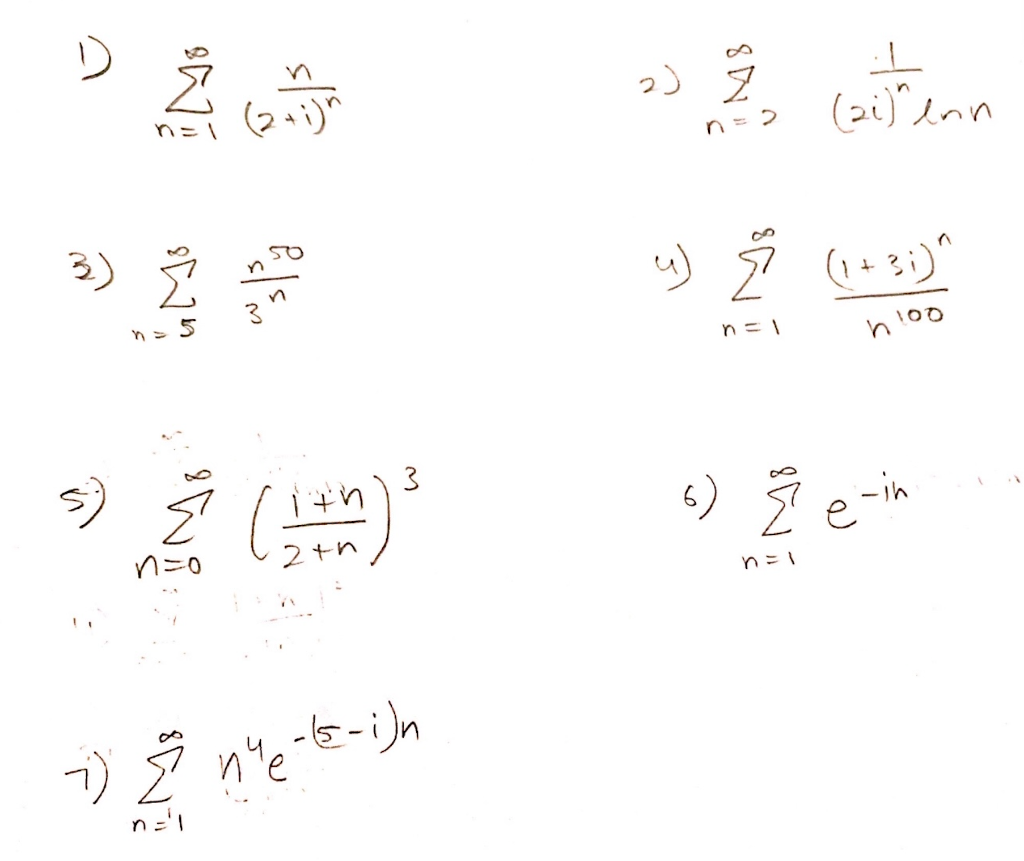 1) ∞ Σ n=1 n/(2+i)^n
2) ∞ Σ n=2 1/((2i)^n ln n)
3) ∞ Σ n=5 n^50/3^n
4) ∞ Σ n=1 (1+3i)^n/n^100
5) ∞ Σ n=0 ((1+n)/(2+n))^3
6) ∞ Σ n=1 e^-in
7) ∞ Σ n=1 n^4 e^-(5-i)n